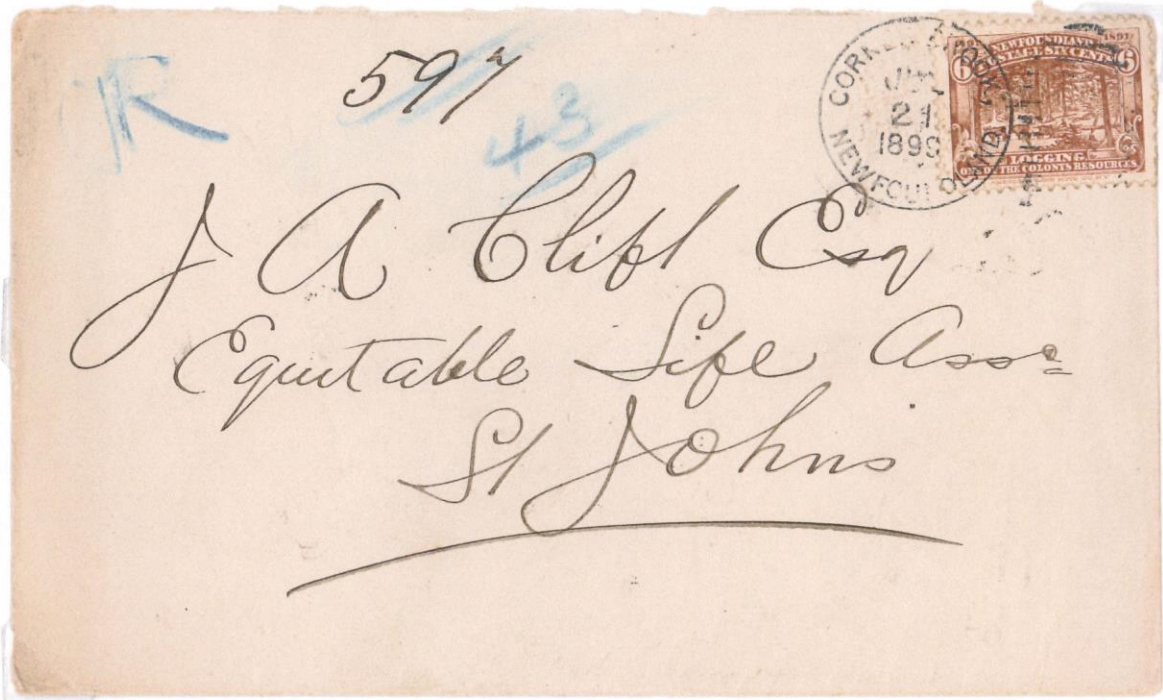 R
597
43
CORNER BROOK
NEWFOUNDLAND
21
1899
1897
NEWFOUNDLAND
POSTAGE SIX CENTS
6 6
LOGGING
ONE OF THE COLONY'S RESOURCES
J A Clift Esq
Equitable Life Assce
St Johns